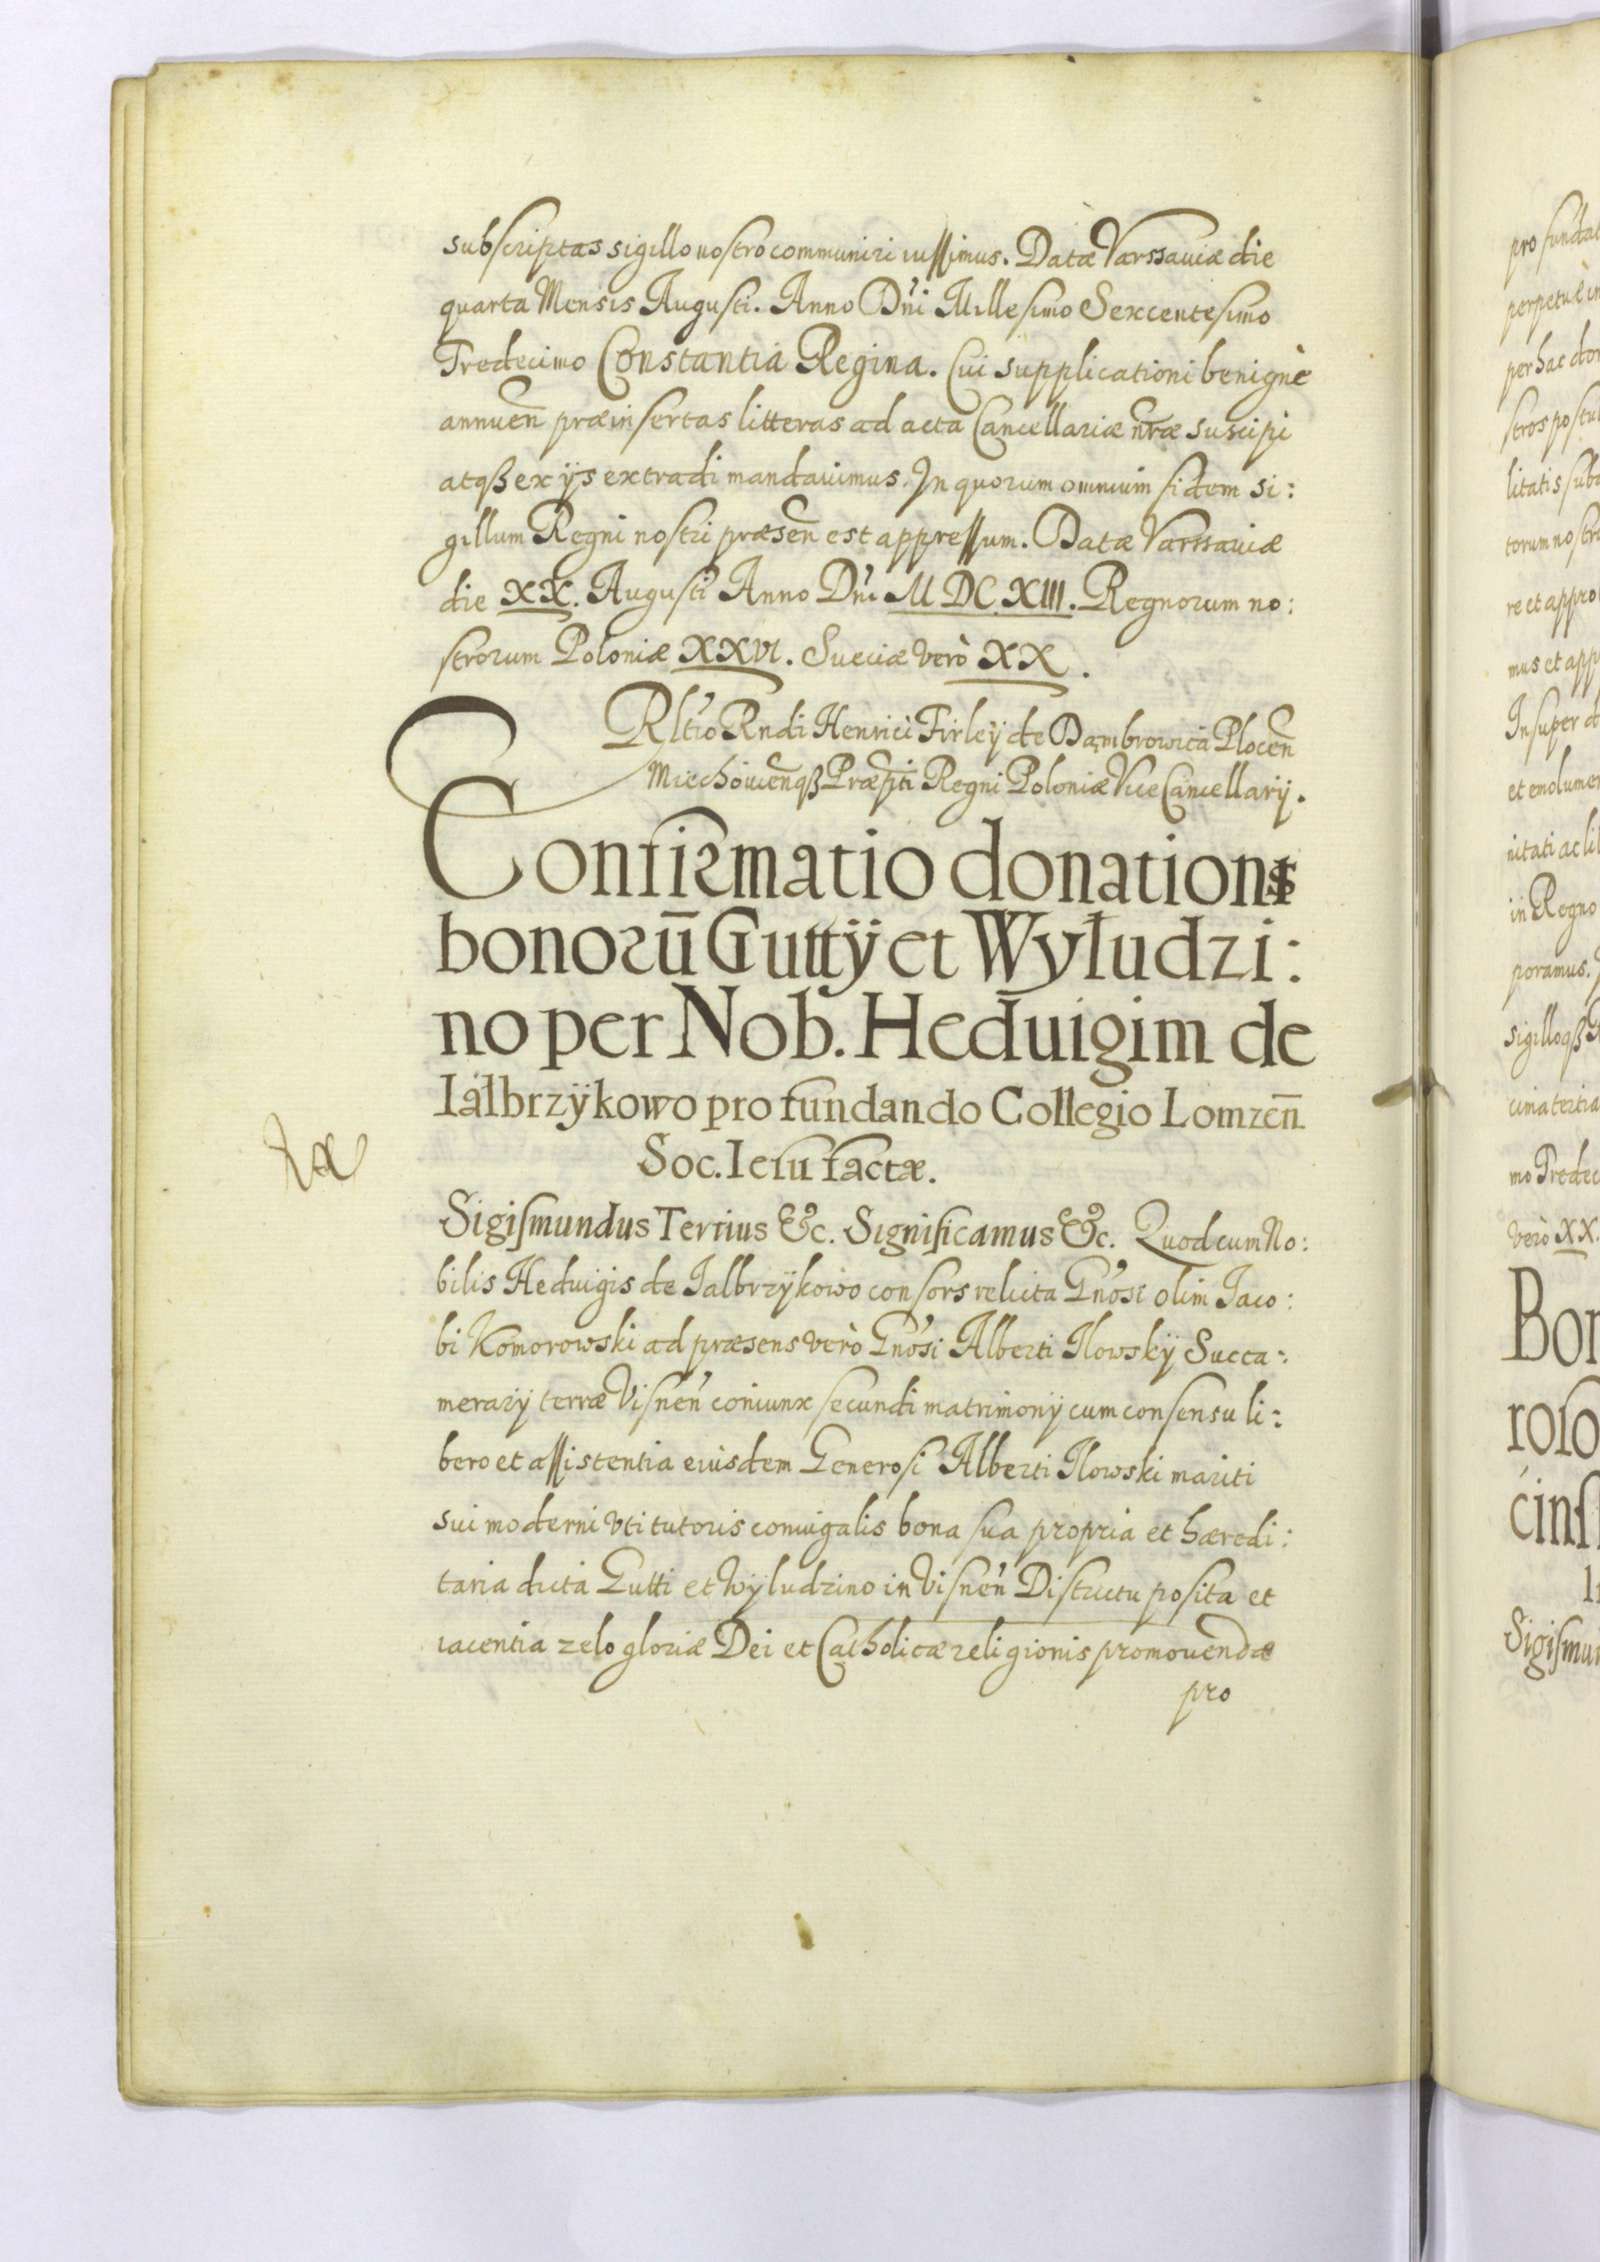 subscriptas sigillo nostro communiri iussimus. Datæ Varssaviæ die
quarta Mensis Augusti. Anno Dńi Millesimo Sexcentesimo
Tredecimo Constantia Regina. Cui supplicationi benignè
annuen̄ præinsertas litteras ad acta Cancellariæ nr̄æ suscipi
atqß ex ijs extradi mandauimus. In quorum omnium fidem si:
gillum Regni nostri præsen̄ est appressum. Datæ Varssauiæ
die XX. Augusti Anno Dńi MDCXIII. Regnorum no:
strorum Poloniæ XXVI. Sueciæ verò XX.
Rltio Rndi Henrici Firleÿ de Dąmbrowica Plocen̄
Miechouien̄qß Præpiti Regni Poloniæ ViceCancellarij.
Confirmatio donationis
bonorū Guttÿ et Wyłudzi:
no per Nob. Heduigim de
Iałbrzÿkowo pro fundando Collegio Lomzen̄
Soc. Iesu factæ.
Sigismundus Tertius &c. Significamus &c. Quod cum No:
bilis Heduigis de Jalbrzÿkowo consors relicta Gńosi olim Jaco:
bi Komorowski ad præsens verò Gńosi Alberti Ilowskÿ Succa:
merarij terræ Visneń coniunx secundi matrimonij cum consensu li:
bero et assistentia eiusdem Generosi Alberti Ilowski mariti
sui moderni vti tutoris coniugalis bona sua propria et hæredi:
taria dicta Gutti et Wÿludzino in Visneń Districtu posita et
iacentia zelo gloriæ Dei et Catholicæ religionis promouendæ
pro
pro fundat
perpetuè in
per hac don
stros postul
litatis suba
torum nostro
re et appro
mus et app
Insuper d
et emolumen
nitati ac lib
in Regno
poramus.
sigilloqß R
cima tertia
mo Tredec
verò XX.
Bon
roso
cins
Sigismun